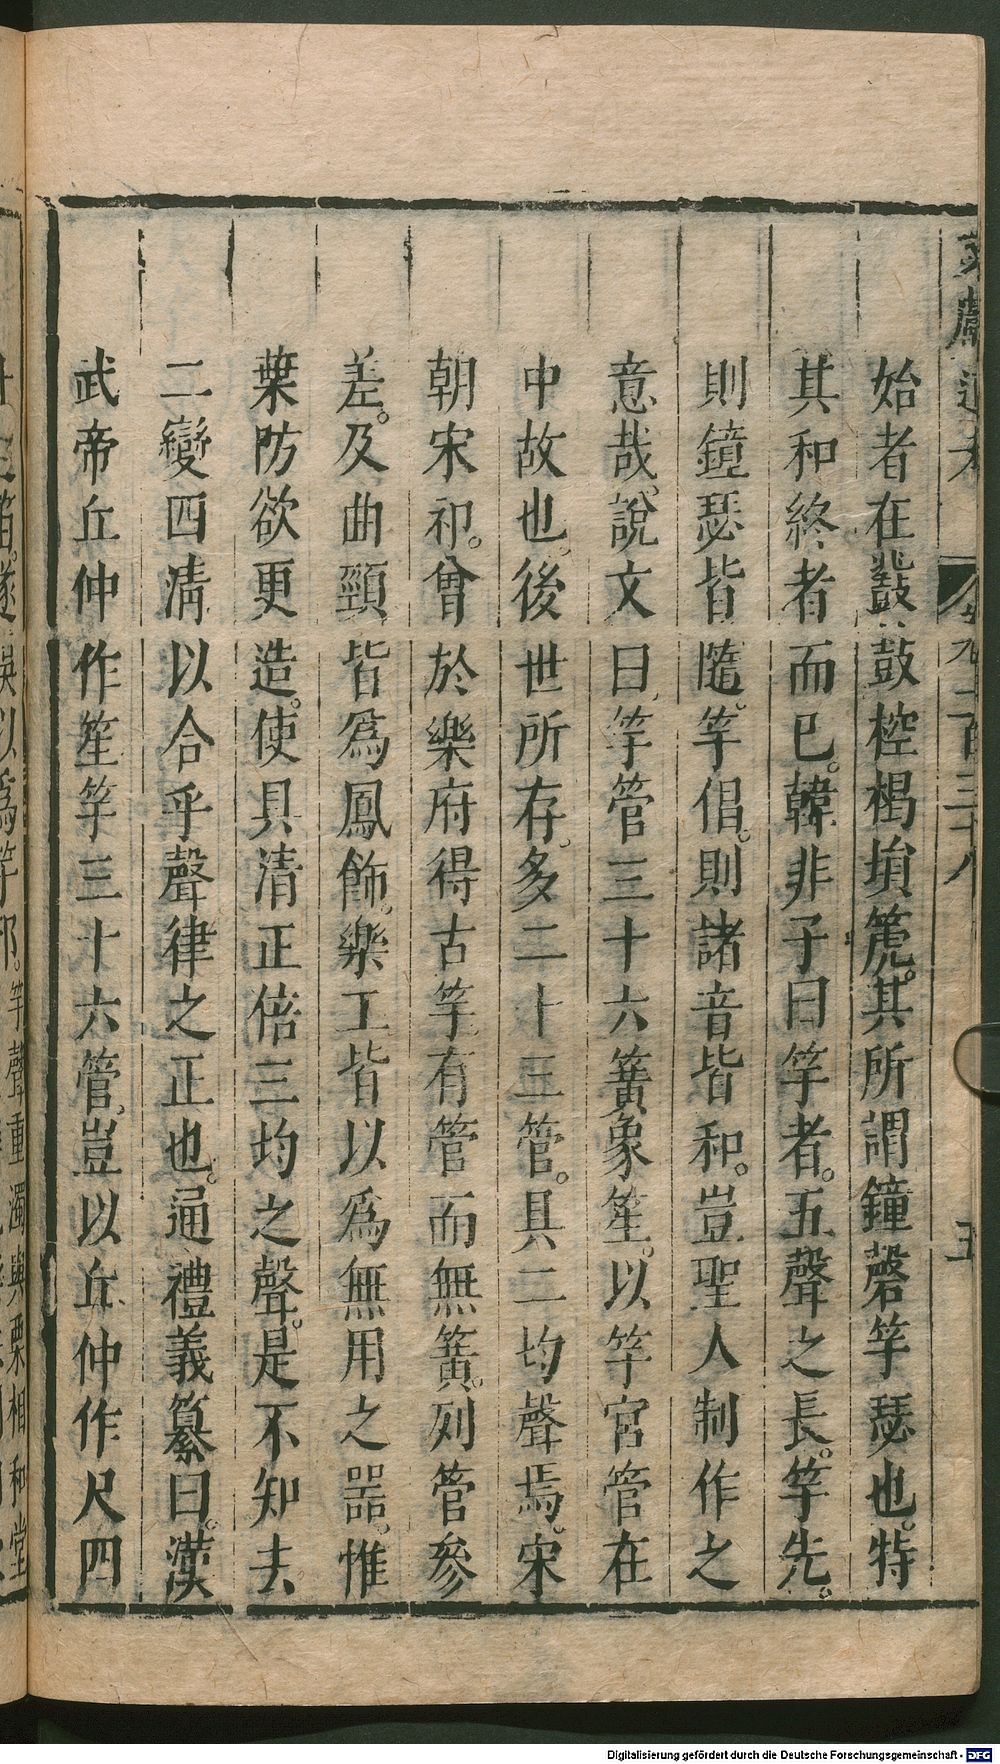 始者在鼗鼓椌楬壎篪其所謂鐘磬竽瑟也特
其和終者而已韓非子曰竽者五聲之長竽先
則鐘瑟皆隨竽倡則諸音皆和豈聖人制作之
意哉說文曰竽管三十六簧象笙以竽宮管在
中故也後世所存多二十三管具二均聲焉宋
朝宋祁曾於樂府得古竽有管而無簧列管參
差及曲頸皆爲鳳飾樂工皆以爲無用之器惟
葉防欲更造使具清正倍三均之聲是不知去
二變四清以合乎聲律之正也通禮義纂曰漢
武帝丘仲作笙竽三十六管豈以丘仲作尺四
以爲竽邪竽聲重濁與栗相和堂
Digitalisierung gefördert durch die Deutsche Forschungsgemeinschaft - DFG